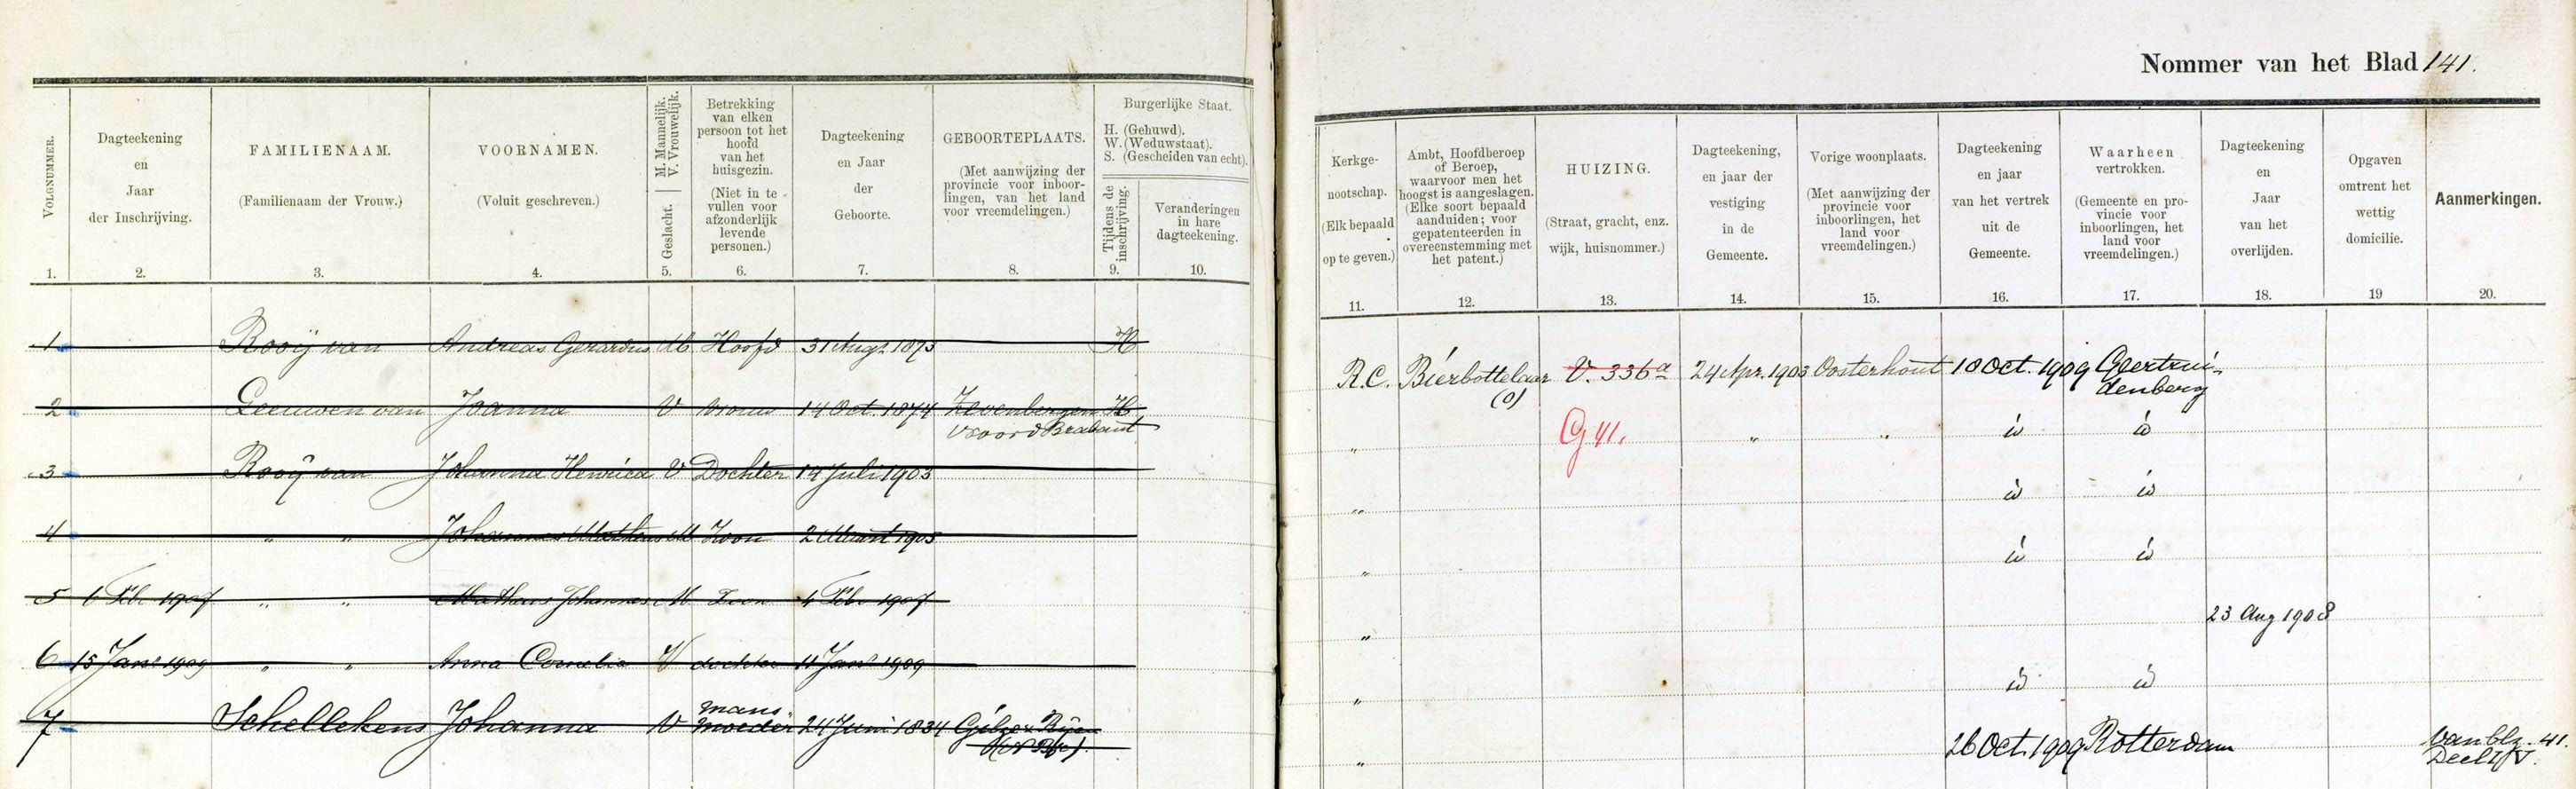 Nommer van het Blad 141.
VOLGNUMMER.
1.
Dagteekening
en
Jaar
der Inschrijving.
2.
FAMILIENAAM.
(Familienaam der Vrouw.)
3.
VOORNAMEN.
(Voluit geschreven.)
4.
M. Mannelijk.
V. Vrouwelijk.
Geslacht.
5.
Betrekking
van elken
persoon tot het
hoofd
van het
huisgezin.
(Niet in te
vullen voor
afzonderlijk
levende
personen.)
6.
Dagteekening
en Jaar
der
Geboorte.
7.
GEBOORTEPLAATS.
(Met aanwijzing der
provincie voor inboor-
lingen, van het land
voor vreemdelingen.)
8.
Burgerlijke Staat.
H. (Gehuwd).
W. (Weduwstaat).
S. (Gescheiden van echt).
Tijdens de
inschrijving.
9.
Veranderingen
in hare
dagteekening.
10.
Kerkge-
nootschap.
(Elk bepaald
op te geven.)
11.
Ambt, Hoofdberoep
of Beroep,
waarvoor men het
hoogst is aangeslagen.
(Elke soort bepaald
aanduiden; voor
gepatenteerden in
overeenstemming met
het patent.)
12.
HUIZING.
(Straat, gracht, enz.
wijk, huisnommer.)
13.
Dagteekening,
en jaar der
vestiging
in de
Gemeente.
14.
Vorige woonplaats.
(Met aanwijzing der
provincie voor
inboorlingen, het
land voor
vreemdelingen.)
15.
Dagteekening
en jaar
van het vertrek
uit de
Gemeente.
16.
Waarheen
vertrokken.
(Gemeente en pro-
vincie voor
inboorlingen, het
land voor
vreemdelingen.)
17.
Dagteekening
en
Jaar
van het
overlijden.
18.
Opgaven
omtrent het
wettig
domicilie.
19
Aanmerkingen.
20.
1 Rooij van Andreas Gerardus M Hoofd 31 Augs 1873 H
R.C. Bierbottelaar V. 336a 24 Apr. 1903 Oosterhout 18 Oct. 1909 Geertrui-
(o) denberg
2 Leeuwen van Joanna V Vrouw 14 Oct 1874 Zevenbergen H
Noord Brabant
" G 41. " " id id
3 Rooij van Johanna Henrica V Dochter 14 Juli 1903
" id id
4 " " Johannes Matheus M Zoon 2 Maart 1905
" id id
5 6 Feb 1907 " " Matheus Johannes M Zoon 4 Feb 1907
" 23 Aug 1908
6 15 Jan 1909 " " Anna Cornelia V dochter 11 Jan 1909
" id id
7 Schellekens Johanna V mans moeder 24 Juni 1834 Gilze & Rijen
(N Br).
" 26 Oct. 1909 Rotterdam van blz. 41.
Deel V.